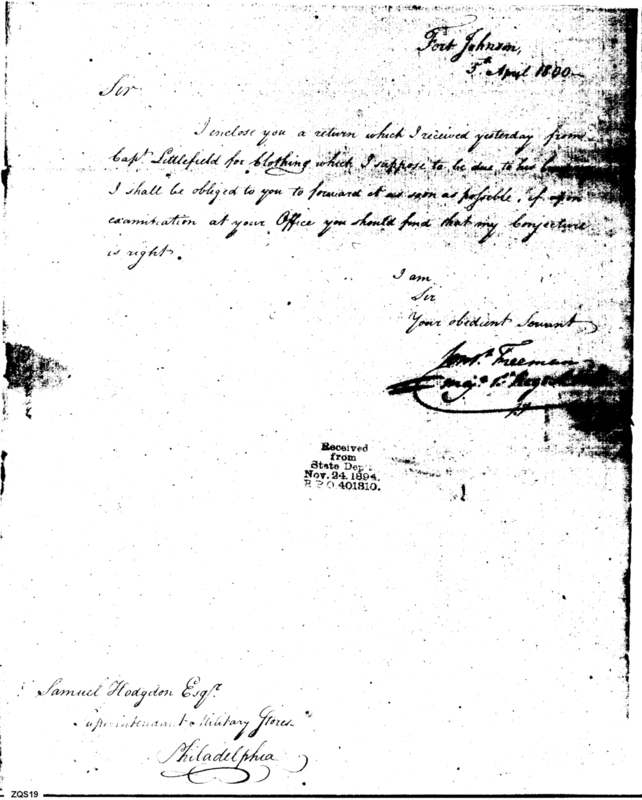 Fort Johnson,
5th April 1800
Sir
I enclose you a return which I received yesterday from
Capt. Littlefield for Clothing which I suppose to be due to his
I shall be obliged to you to forward it as soon as possible, if upon
examination at your Office you should find that my Conjecture
is right.
I am
Sir
Your obedient Servant
Freeman
Majr.
Received
from
State Dept.
Nov. 24. 1894.
R P O 401310.
Samuel Hodgdon Esqr.
Superintendant Military Stores
Philadelphia
ZQS19